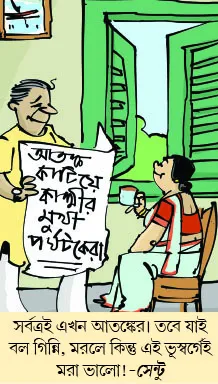 আতঙ্ক
কাটিয়ে
কাশ্মীর
মুখী
পর্যটকেরা
সর্বত্রই এখন আতঙ্কের। তবে যাই
বল গিন্নি, মরলে কিন্তু এই ভূস্বর্গেই
মরা ভালো! -সেন্টু